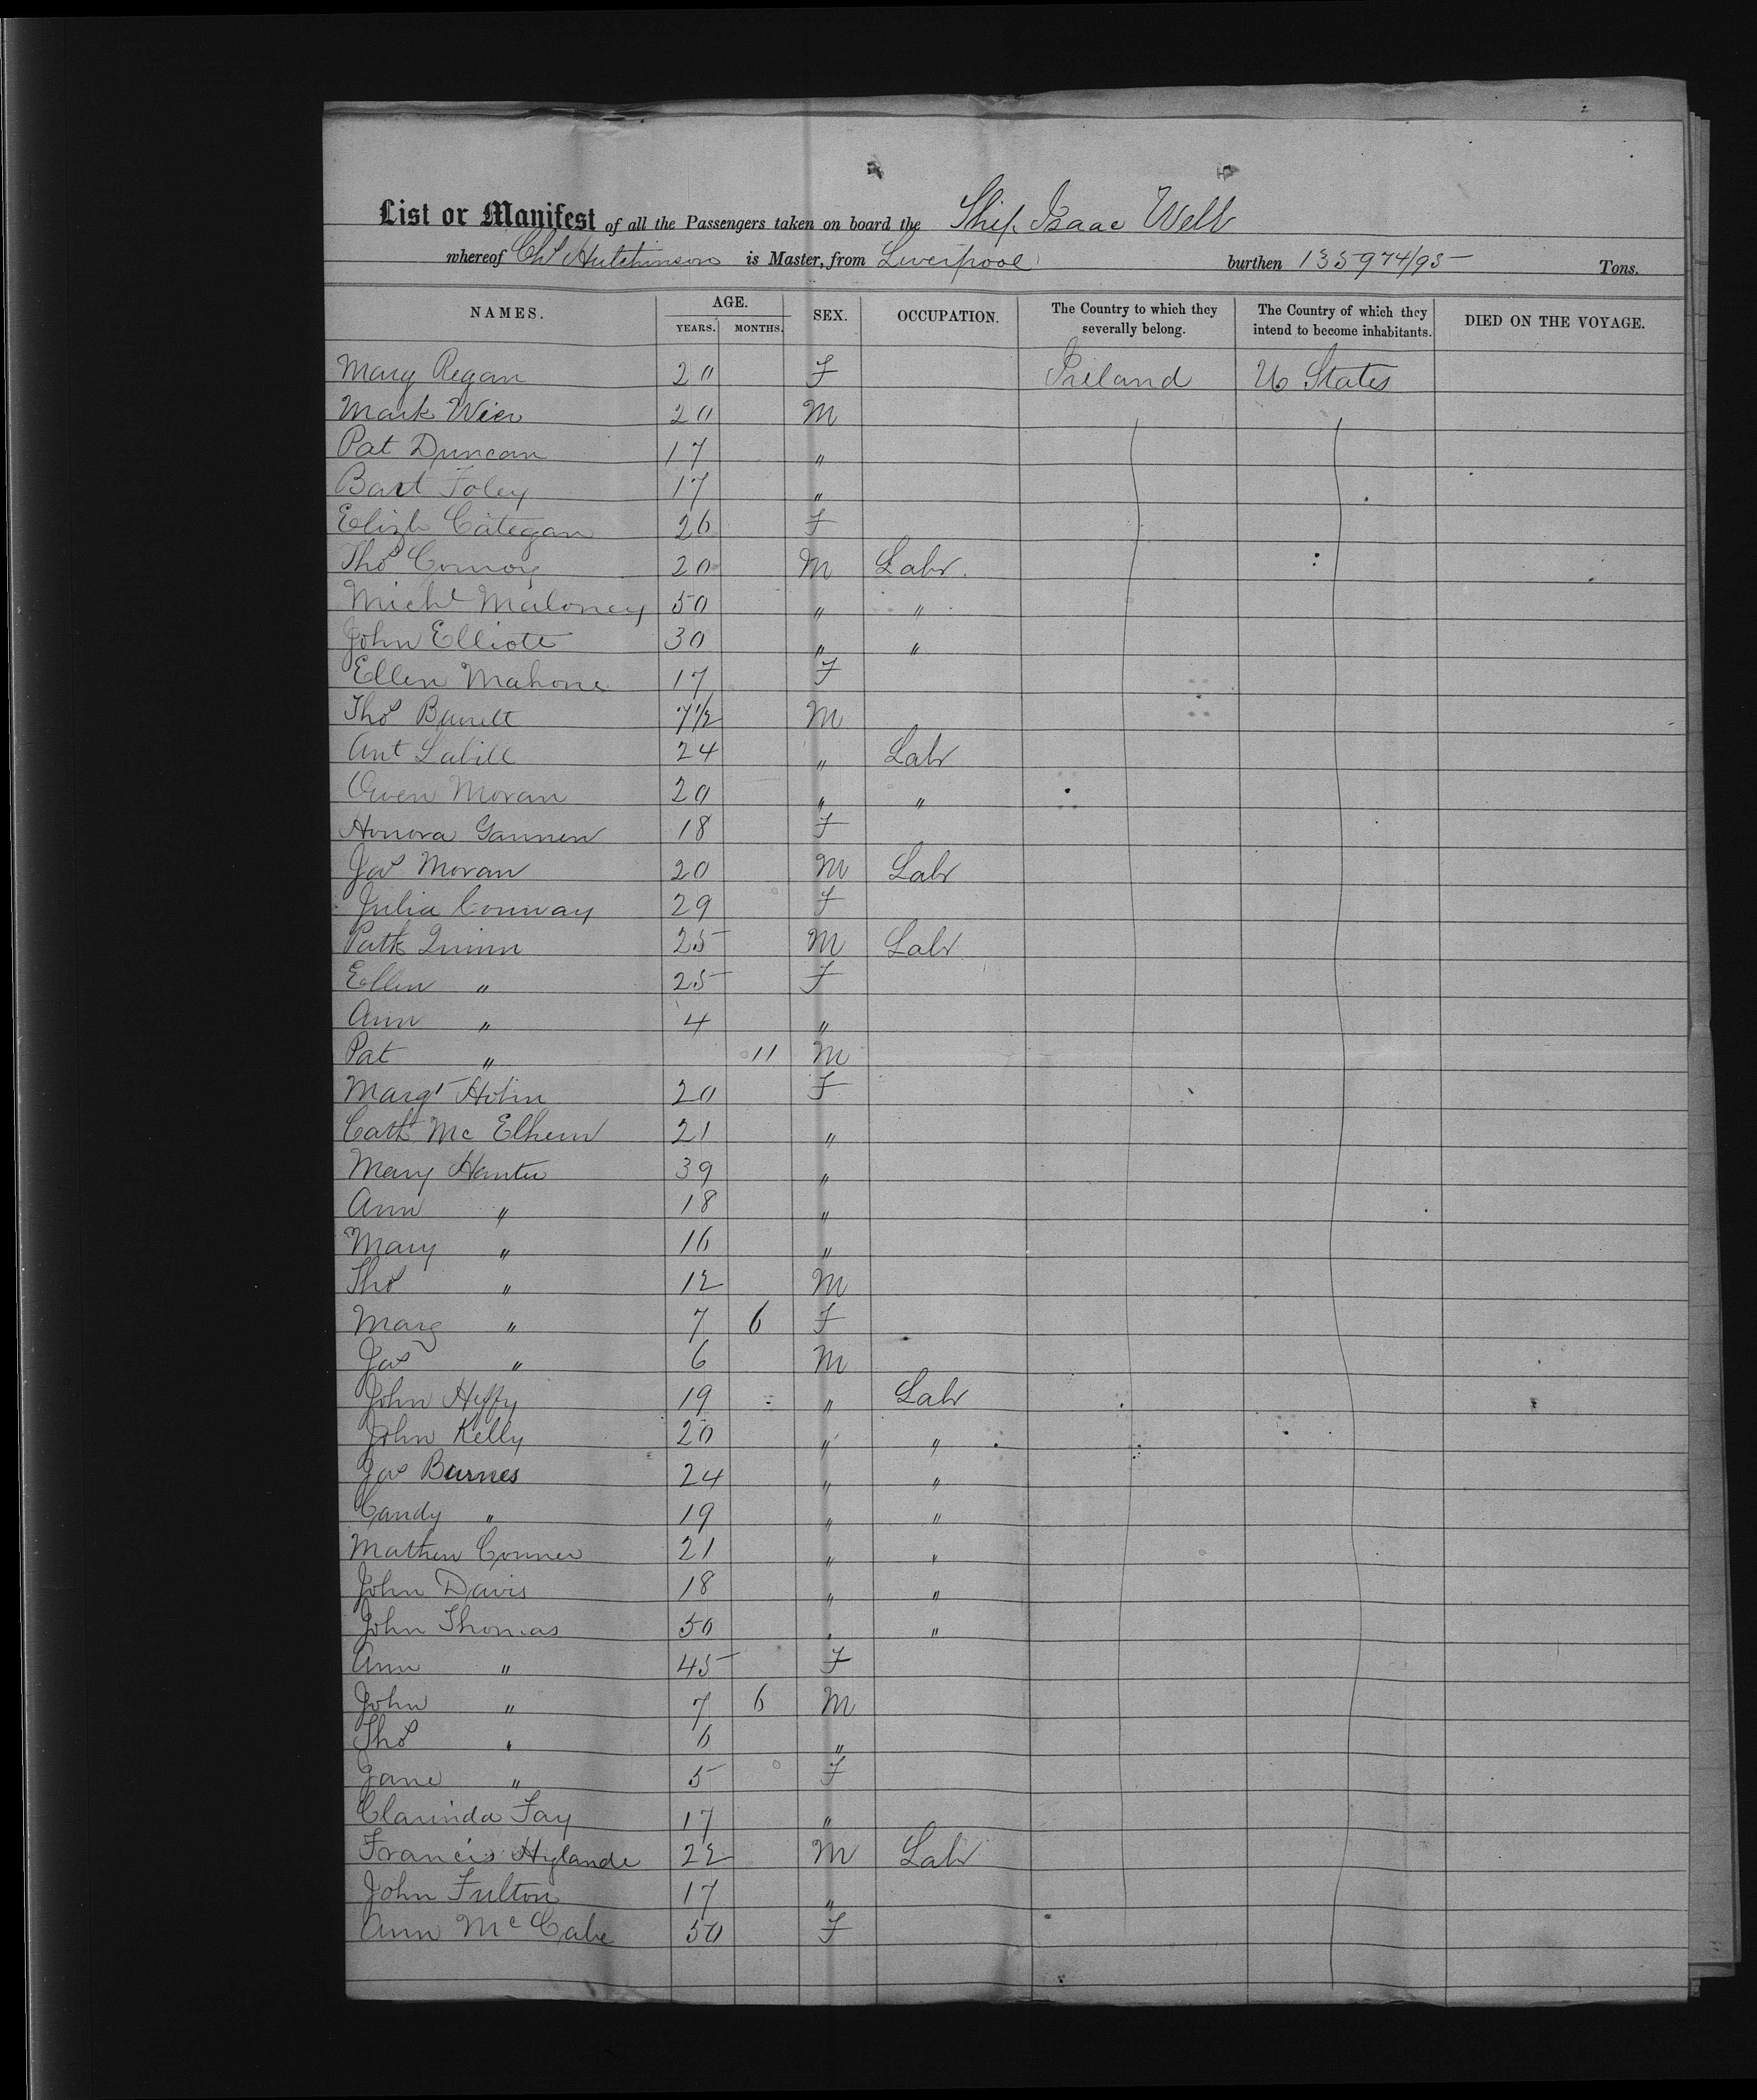 List or Manifest of all the Passengers taken on board the Ship Isaac Webb
whereof Chs Hutchinson is Master, from Liverpool burthen 1359 74/95 Tons.
NAMES. AGE. YEARS. MONTHS. SEX. OCCUPATION. The Country to which they severally belong. The Country of which they intend to become inhabitants. DIED ON THE VOYAGE.
Mary Regan 20 F Ireland U States
Mark Wier 20 M
Pat Duncan 17 "
Bart Foley 17 "
Elizh Categan 26 F
Thos Conroy 20 M Labr.
Michl Maloney 50 " "
John Elliott 30 " "
Ellen Mahone 17 F
Thos Barrett 7 1/2 M
Ant Lavill 24 " Labr
Owen Moran 20 " "
Honora Gannen 18 F
Jas Moran 20 M Labr
Julia Conway 29 F
Patk Quinn 25 M Labr
Ellen " 25 F
Ann " 4 "
Pat " 11 M
Margt Hobin 20 F
Cath Mc Elhern 21 "
Mary Hunter 39 "
Ann " 18 "
Mary " 16 "
Thos " 12 M
Marg " 7 6 F
Jas " 6 M
John Heffy 19 " Labr
John Kelly 20 " "
Jas Barnes 24 " "
Candy " 19 " "
Mathew Conner 21 " "
John Davis 18 " "
John Thomas 50 " "
Ann " 45 F
John " 7 6 M
Thos " 6 "
Jane " 5 F
Clarinda Fay 17 "
Francis Hylande 22 M Labr
John Fulton 17 "
Ann McCabe 50 F